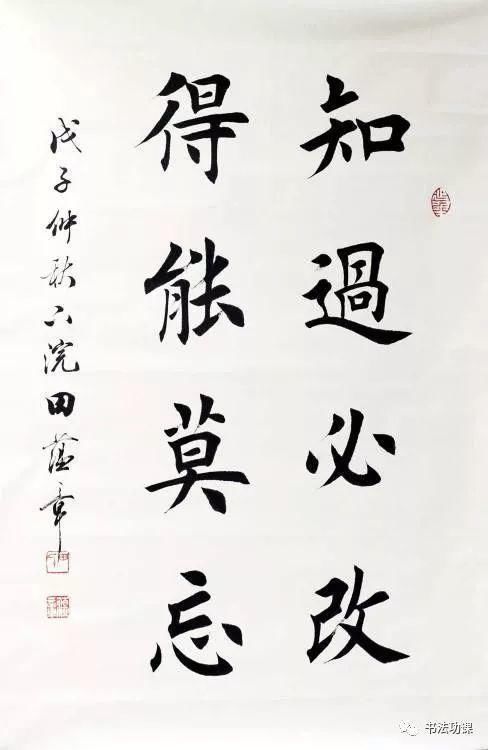 知過必改
得能莫忘
戊子仲秋下浣田蘊章
书法功课